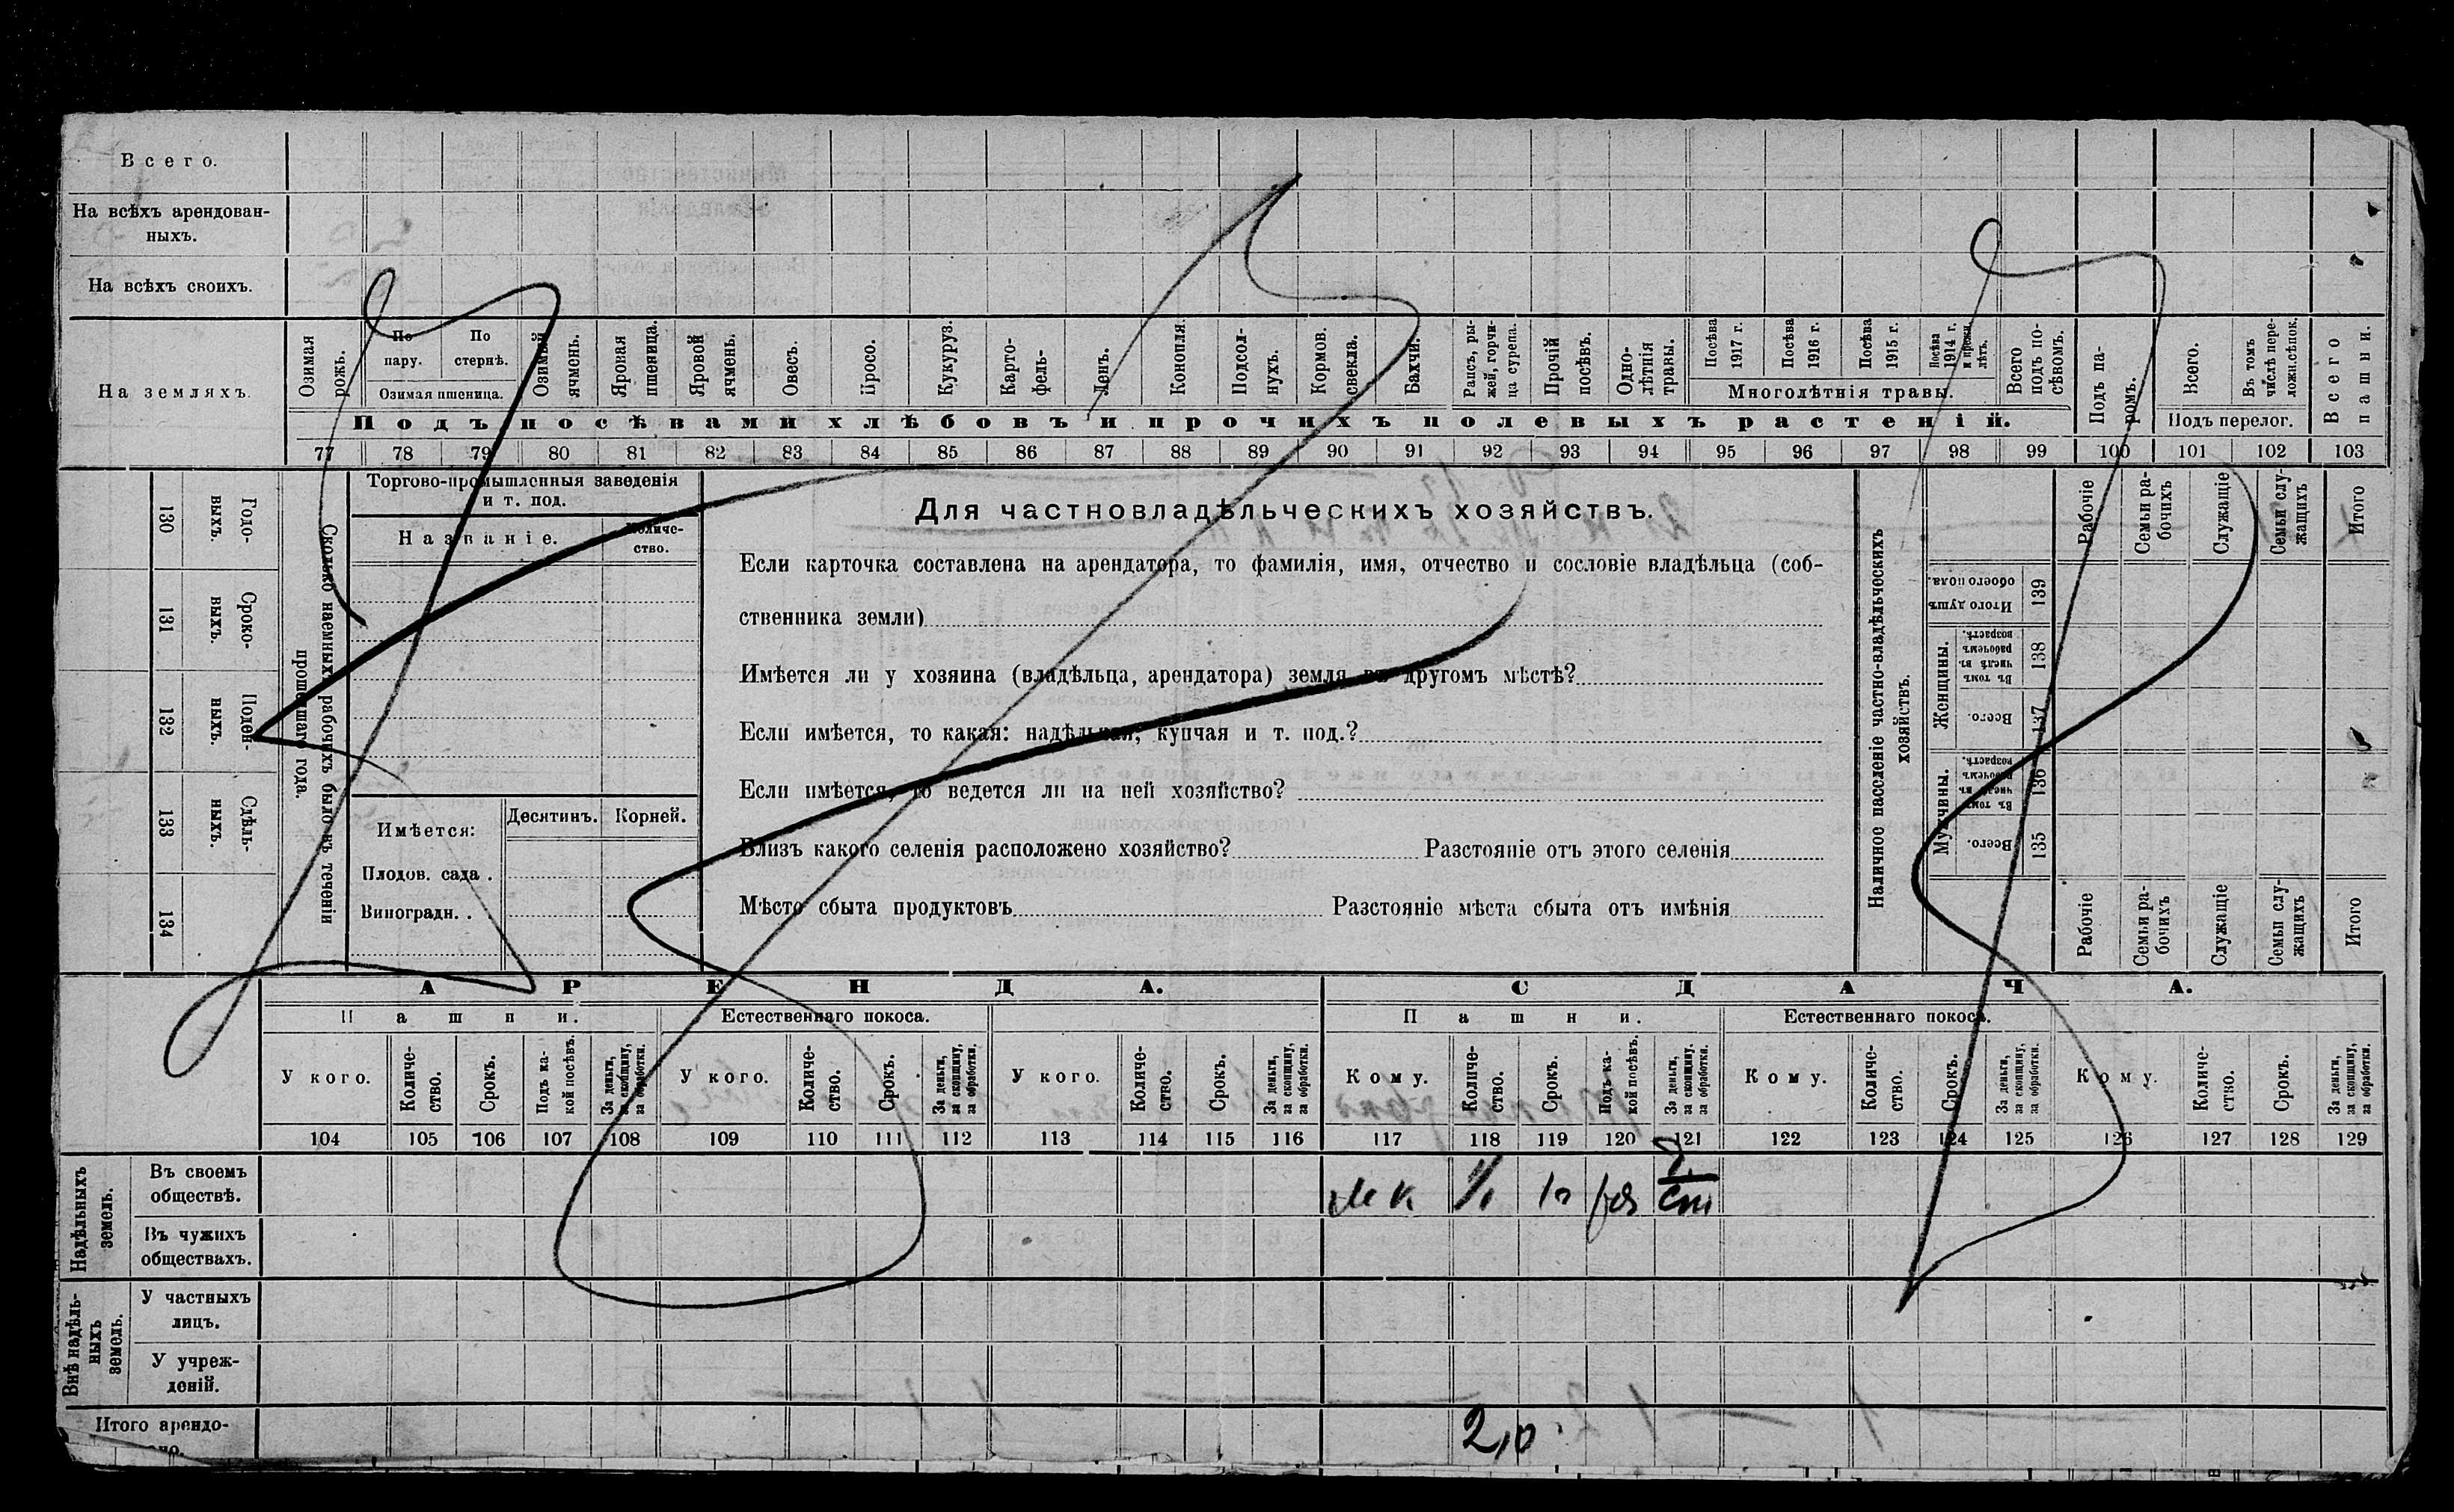 Всего.
На всѣхъ арендован-
ныхъ.
На всѣхъ своихъ.
На земляхъ
Озимая рожь.
По пару.
По стернѣ.
Озимая пшеница.
Озимый ячмень.
Яровая пшеница.
Яровой ячмень.
Овесъ.
Просо.
Кукуруз.
Карто-
фель-
Ленъ.
Конопля.
Подсол-
нухъ.
Кормов.
свекла.
Бахчи.
Рапсъ, ры-
жей, горчи-
ца сурепа.
Прочій
посѣвъ.
Одно-
лѣтнія
травы.
Посѣва
1917 г.
Посѣва
1916 г.
Посѣва
1915 г.
Посѣва
1914 г.
и прежн.
лѣтъ.
Многолѣтнія травы.
Всего
подъ по-
сѣвомъ.
Подъ па-
ромъ.
Всего.
Въ томъ
числѣ пере-
ложн.сѣпок.
Подъ перелог.
Всего
пашни.
Подъ посѣвами хлѣбовъ и прочихъ полевыхъ растеній.
77 78 79 80 81 82 83 84 85 86 87 88 89 90 91 92 93 94 95 96 97 98 99 100 101 102 103
Годо-
выхъ.
130
Сроко-
выхъ.
131
Поден-
ныхъ.
132
Сдѣль-
ныхъ.
133
134
Сколько наемныхъ рабочихъ было въ теченіи
прошлаго года.
Торгово-промышленныя заведенія
и т. под.
Названіе.
Количе-
ство.
Имѣется:
Десятинъ.
Корней.
Плодов. сада .
Виноградн. .
Для частновладѣльческихъ хозяйствъ.
Если карточка составлена на арендатора, то фамилія, имя, отчество и сословіе владѣльца (соб-
ственника земли)
Имѣется ли у хозяина (владѣльца, арендатора) земля въ другомъ мѣстѣ?
Если имѣется, то какая: надѣльная, купчая и т. под.?
Если имѣется, то ведется ли на ней хозяйство?
Близъ какого селенія расположено хозяйство? Разстояніе отъ этого селенія
Мѣсто сбыта продуктовъ Разстояніе мѣста сбыта отъ имѣнія
Наличное населеніе частно-владѣльческихъ
хозяйствъ.
Рабочіе
Семьи ра-
бочихъ
Служащіе
Семьи слу-
жащихъ
Итого
Итого душъ
обоего пола.
139
Женщины.
Въ томъ
числѣ въ
рабочемъ
возрастѣ.
138
Всего.
137
Мужчины.
Въ томъ
числѣ въ
рабочемъ
возрастѣ.
136
Всего.
135
Рабочіе
Семьи ра-
бочихъ
Служащіе
Семьи слу-
жащихъ
Итого
АРЕНДА.
СДАЧА.
Пашни.
Естественнаго покоса.
Пашни.
Естественнаго покоса.
У кого.
Количе-
ство.
Срокъ.
Подъ ка-
кой посѣвъ.
За деньги,
за скопщину,
за обработки.
У кого.
Количе-
ство.
Срокъ.
За деньги,
за скопщину,
за обработки.
У кого.
Количе-
ство.
Срокъ.
За деньги,
за скопщину,
за обработки.
Кому.
Количе-
ство.
Срокъ.
Подъ ка-
кой посѣвъ.
За деньги,
за скопщину,
за обработки.
Кому.
Количе-
ство.
Срокъ.
За деньги,
за скопщину,
за обработки.
Кому.
Количе-
ство.
Срокъ.
За деньги,
за скопщину,
за обработки.
104 105 106 107 108 109 110 111 112 113 114 115 116 117 118 119 120 121 122 123 124 125 126 127 128 129
Надѣльныхъ
земель.
Въ своемъ
обществѣ.
Въ чужихъ
обществахъ.
Внѣ надѣль-
ныхъ
земель.
У частныхъ
лицъ.
У учреж-
деній.
Итого арендо-
2,0